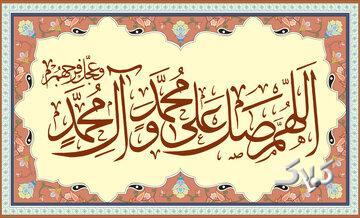 اَللّهُمَّ صَلِّ عَلى مُحَمَّدٍ وَ آلِ مُحَمَّدٍ
وَعَجِّل فَرَجَهُم